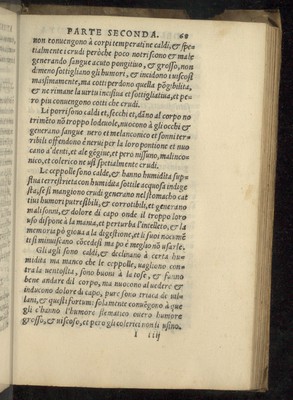 PARTE SECONDA. 68
non conuengono à corpi temperati ne caldi, & spe-
tialmente i crudi peròche poco notriscono & male
generando sangue acuto pongitiuo, & grosso, non
dimeno sottigliano gli humori, & incidono i uiscosi
massimamente, ma cotti perdono quella
& ne rimane la incisiua et sottigliatiua, et pe
ro piu conuengono cotti che crudi.
Li porri sono caldi et secchi et, dāno al corpo no
trimēto nō troppo lodeuole, nuocono à gli occhi &
generano sangue nero et melanconico et sonni ter-
ribili offendono è nerui per la loro pontione et nuo
cano a denti, et ale gēgiue, et pero nissuno, malinco-
nico, et colerico ne usi spetialmente crudi.
Le ceppolle sono calde, & hanno humidita
terrestrita con humidita sottile acquosa indige
sta, se si mangiono crudi generano nel stomacho cat
tiui humori putresibili, & corrotibili, et generano
mali sonni, & dolore di capo onde il troppo loro
uso dispone à la mania, et perturba l'intelletto, & la
memoria pò gioua a la digestione, et li suoi nocumē
ti si minuiscano cōcedēsi ma po è meglio nō usarle.
Gli agli sono caldi, & declinano à certa hu-
midita ma manco che le ceppolle, uagliono con-
tra la uentosita, sono buoni à la tose, & fanno
bene andare del corpo, ma nuocono al uedere &
inducono dolore di capo, pure sono triaca de uil-
lani, & questi furtum: solamente conuēgono à que
gli c'hanno l'humore flematico ouero humore
grosso, & uiscoso, et pero gli colerici non li usino.
I iiij